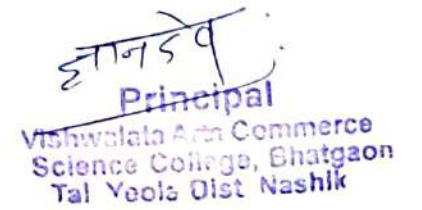 ज्ञानदेव
Principal
Vishwalata Arts Commerce
Science College, Bhatgaon
Tal Yeola Dist Nashik